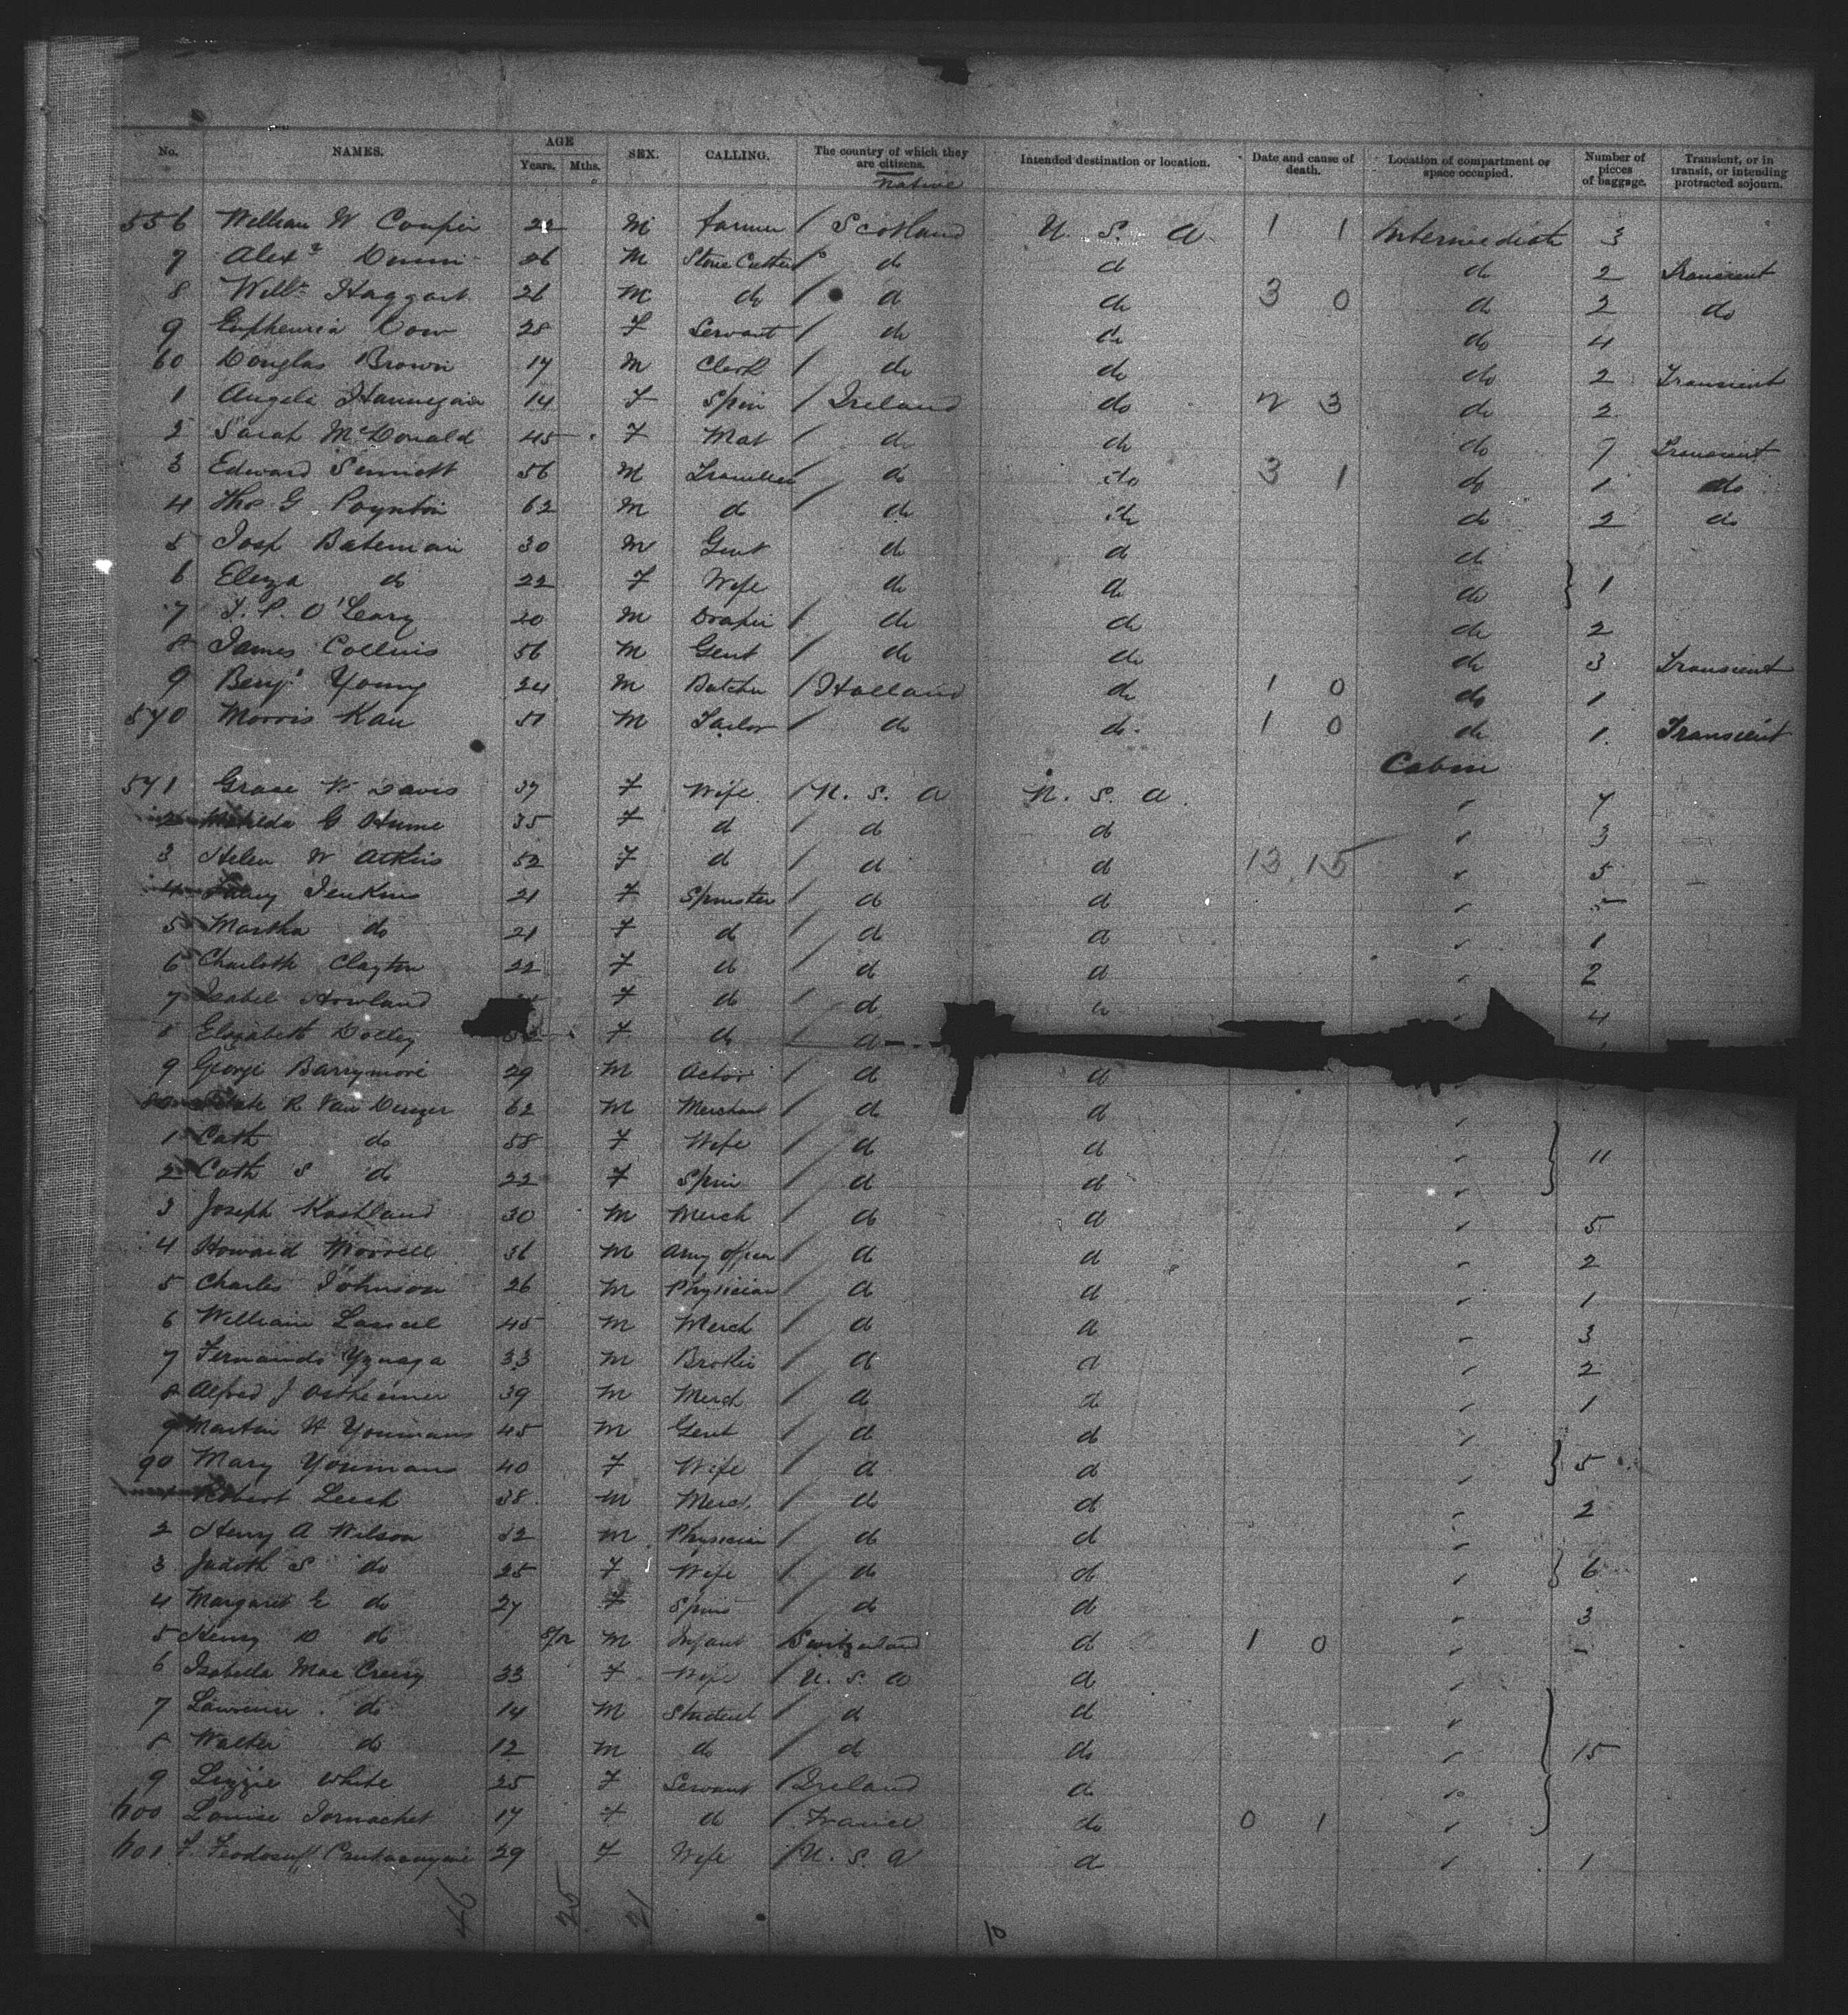 No. NAMES. AGE Years. Mths. SEX. CALLING. The country of which they are citizens. Intended destination or location. Date and cause of death. Location of compartment or space occupied. Number of pieces of baggage. Transient, or in transit, or intending protracted sojourn.
native
556 William W 22 M farmer / Scotland U. S. A. 1 1 Intermediate 3
7 Alexr 26 M Stone Cutter do do do 2 Transient
8 Willm Haggart 26 M do / do do 3 0 do 2 do
9 Euphemia Dow 28 F Servant / do do do 4
60 Douglas Brown 17 M Clerk / do do do 2 Transient
1 Angela Hannegan 14 F Spin / Ireland do 2 3 do 2
2 Sarah McDonald 45 F Mat / do do do 7 Transient
3 Edward Sinnott 56 M do do 3 1 do 1 do
4 Thos G. Poynton 62 M do / do do do 2 do
5 Josh Bateman 30 M Gent do do do
6 Eliza do 22 F Wife do do do } 1
7 J. P. O'Leary 20 M Draper / do do do 2
8 James Collins 56 M Gent / do do do 3 Transient
9 Benjn Young 24 M Butcher / Holland do 1 0 do 1
570 Morris Kau 51 M Tailor / do do 1 0 do 1. Transient
Cabin
571 Grace W Davis 37 F Wife / U. S. A U. S. A. " 7
2 Matilda G Hume 35 F do / do do " 3
3 Helen W Atkins 52 F do / do do 13 15 " 5
4 Jenkins 21 F Spinster / do do " 5
5 Martha do 21 F do / do do " 1
6 Charlotte Clayton 22 F do / do do " 2
7 Isabel Howland F do / do do " 4
8 Elizabeth F do / do
9 George Barrymore 29 M Actor / do do
80 R Van 62 M Merchant / do do "
1 Cath do 58 F Wife / do do " } 11
2 Cath S do 22 F Spin / do do "
3 Joseph 30 M Merch / do do " 5
4 Howard 36 M Army Officer / do do " 2
5 Charles Johnson 26 M Physician do do " 1
6 William 45 M Merch / do do " 3
7 Fernando Yznaga 33 M Broker / do do " 2
8 Alfred J Ostheimer 39 M Merch / do do " 1
9 Martin H Youmans 45 M Gent / do do "
90 Mary Youmans 40 F Wife / do do " } 5
Robert Leech 38 M Merch / do do " 2
2 Henry A Wilson 32 M Physician / do do "
3 Judith S do 25 F Wife / do do " } 6
4 Margaret E do 27 F Spins / do do " 3
5 Henry D do 8/12 M Infant / Switzerland do 1 0 " -
6 Isabella Mac Creery 33 F Wife / U. S. A do "
7 Lawrence do 14 M Student / do do "
8 Walter do 12 M do / do do " } 15
9 Lizzie White 25 F Servant / Ireland do "
600 Louise 17 F do / France do 0 1 "
601 29 F Wife / U. S. A do " 1
46 25 21 10